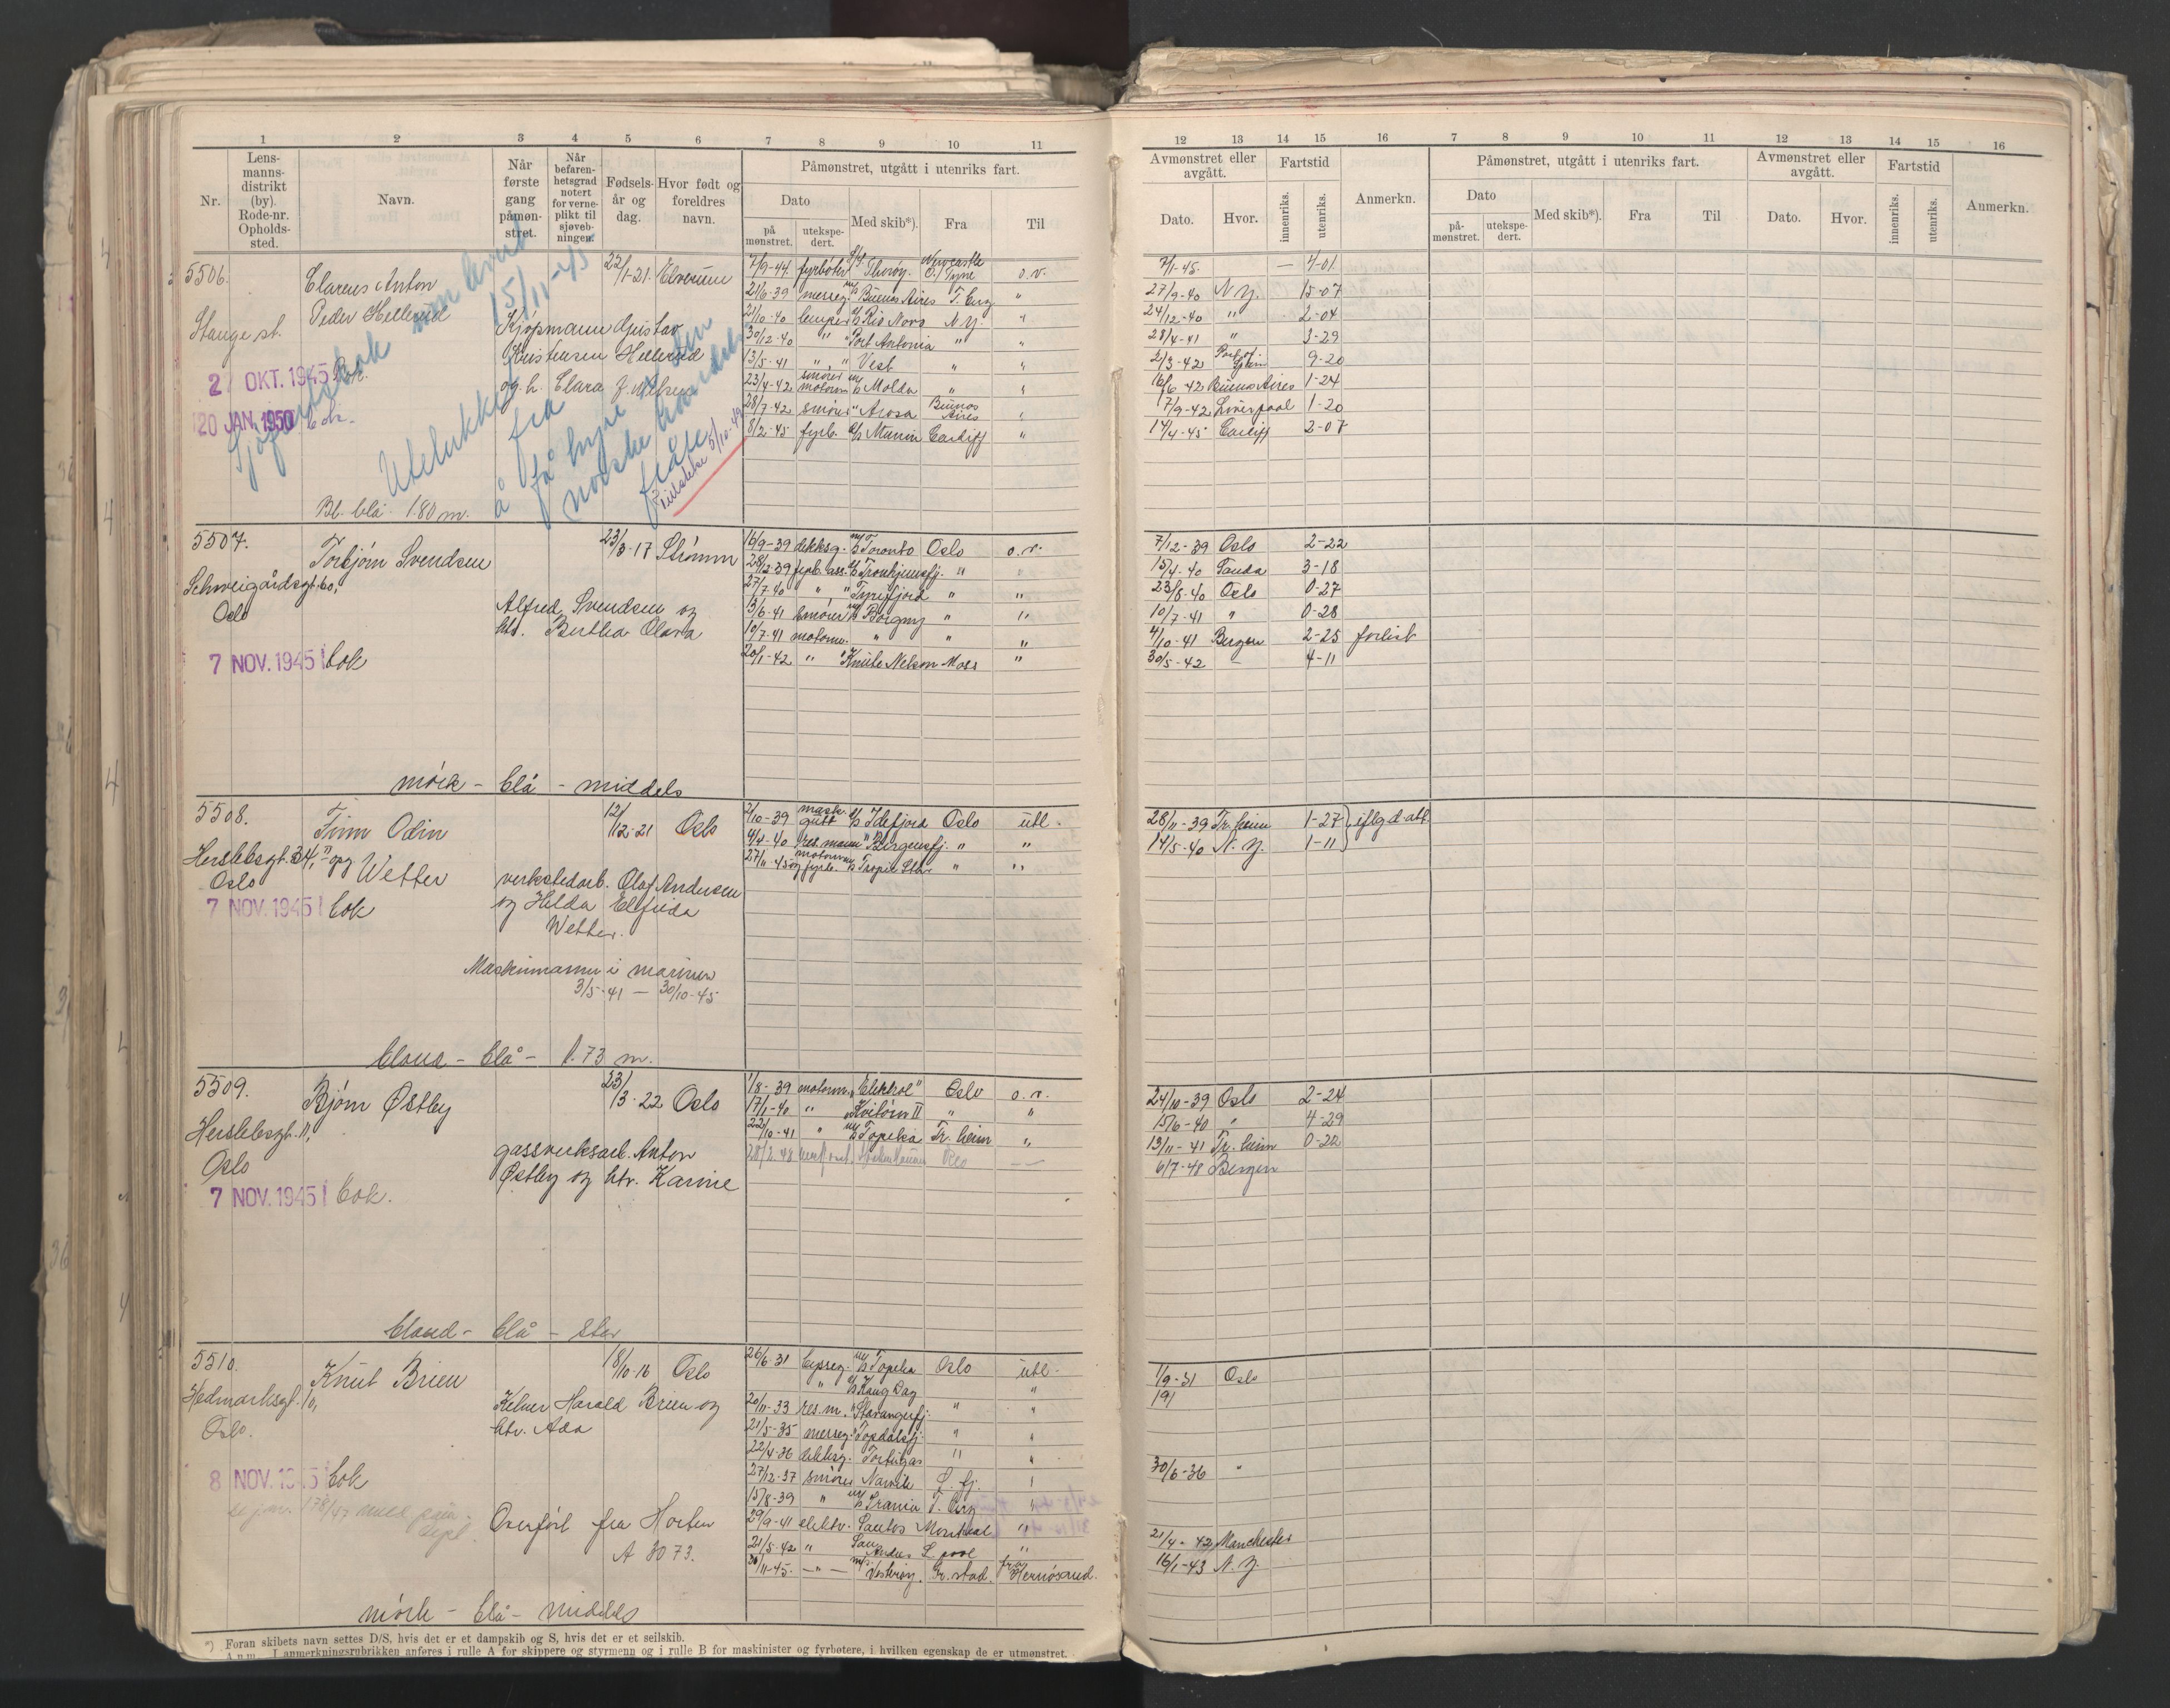 1 2 3 4 5 6 7 8 9 10 11
Nr. Lensmannsdistrikt (by). Rode-nr. Opholdssted. Navn. Når første gang påmønstret. Når befarenhetsgrad notert for verneplikt til sjøvebningen. Fødselsår og dag. Hvor født og foreldres navn. Påmønstret, utgått i utenriks fart.
Dato Med skib*). Fra Til
på mønstret. utekspedert.
12 13 14 15 16 7 8 9 10 11 12 13 14 15 16
Avmønstret eller avgått. Fartstid Anmerkn. Påmønstret, utgått i utenriks fart. Avmønstret eller avgått. Fartstid Anmerkn.
Dato. Hvor. innenriks. utenriks. Dato Med skib*). Fra Til Dato. Hvor. innenriks. utenriks.
på-mønstret. utekspedert.
5506. Clarens Anton 22/1-21. Elverum
Peder Hellerud
Stange st.
Kjøpmann Gustav
Kristensen Hellerud
og h. Clara
2 OKT. 1945 Bok.
20 JAN. 1950 bok.
Sjøfartsbok
15/11-45
Utelukket fra
å få hyre i den
norske handels
flåte
5/10-49
Bl. blå 1.80 m.
7/9-44. fyrbøter Thorøy. Newcastle o/Tyne o.v. 7/1-45. — 4-01
21/6-39 messeg. M/S Buenos Aires T.berg " 27/9-40 N.Y. 15-07
21/10-40 lemper Rio Novo N.Y. " 24/12-40 " 2-04
30/12-40 " Port Antonio " " 28/4-41 " 3-29
13/5-41 " " Vest " " 2/3-42 9-20
23/4-42 smører motorm M/S Molda " " 16/6-42 Buenos Aires 1-24
28/7-42 smører " Arosa Buenos Aires " 17/9-42 Liverpool 1-20
8/2-45 fyrb. D/S Munin Cardiff " 14/4-45 Cardiff 2-07
5507. Torbjørn Svendsen 23/3-17 Strømm
Schweigårdsgt. 60,
Oslo
Alfred Svendsen og
htr. Bertha Olava
7 NOV. 1945 bok
mørk - blå - middels
16/9-39 dekksg. M/S Toronto Oslo o.v. 7/12-39 Oslo 2-22
28/12-39 fyrb. ass. D/S Tronhjemsfj. " " 15/4-40 Sauda 3-18
27/7-40 " " Tyrifjord " " 23/8-40 Oslo 0-27
13/6-41 smører M/S Borgny " " 10/7-41 " 0-28
10/7-41 motorm. " " " 4/10-41 Bergen 2-25 forlist
20/1-42 " " Knute Nelson Moss " 30/5-42 - 4-11
5508. Finn Odin 12/12-21 Oslo
Herslebsgt. 34, opg Wetter
Oslo
verkstedarb. Olaf Andersen
og Hilda Elfrida
Wetter.
7 NOV. 1945 bok
Maskinmann i marinen
3/5-41 — 30/10-45
blond - blå - 1.73 m.
2/10-39 mask. gutt D/S Idefjord Oslo utl. 28/11-39 Tr.heim 1-27 iflg. d. att
4/4-40 res. mann " Bergensfj. " " 14/5-40 N.Y. 1-11
27/11-45 motorm og fyrb. D/S Tropic Star " "
5509. Bjørn Østby 23/3-22 Oslo
Herslebsgt. 11,
Oslo
gassverksarb. Anton
Østby og htr. Karine
7 NOV. 1945 bok.
blond - blå - stor
1/8-39 motorm. "Elektrol" Oslo o.v. 24/10-39 Oslo 2-24
17/1-40 " Kvitørn II " " 15/6-40 " 4-29
22/10-41 " M/S Topeka Tr.heim " 13/11-41 Tr.heim 0-22
28/2-48 Oslo — 6/7-48 Bergen
5510. Knut Brien 18/10-16 Oslo
Hedmarksgt. 10,
Oslo.
Kelner Harald Brien og
htr. Ada
8 NOV. 1945 bok
Overført fra Horten
A 3073.
mørk - blå - middels
26/6-31 byssg. M/S Topeka Oslo utl. 1/9-31 Oslo
" D/S Haug Dag " 191
20/11-33 res. m. " Stavangerfj. " "
21/5-35 messeg. Topdalsfj. " "
22/4-36 dekksg. Tortugas " " 30/6-36 "
27/12-37 smører Narvik L. fj. "
15/8-39 " M/S Irania T. berg "
29/9-41 elektr. Santos Montreal " 21/4-42 Manchester
21/5-42 " San Andres L.pool " 16/1-43 N.Y.
20/11-45. — " — M/S Vesterøy. Fr.stad. Hernøsand.
Foran skibets navn settes D/S, hvis det er et dampskib og S, hvis det er et seilskib.
Anm. I anmerkningsrubrikken anføres i rulle A for skippere og styrmenn og i rulle B for maskinister og fyrbøtere, i hvilken egenskap de er utmønstret.